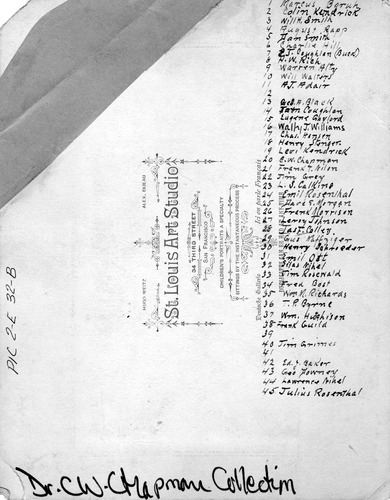 1 Marcus Baruh
2 Colin Kendrick
3 Will H. Smith
4 August Rapp
5 Dan Smith
6 Charlie Hill
7 Coughlan (Buck)
8 H.W. Rich
9 Warren Alty
10 Will Walters
11 A.J. Adair
12
13 Geo. A. Black
14 Tom Coughlan
15 Eugene Gaylord
16 Wally J. Williams
17 Chas. Hansen
18 Henry
19 Levi Kendrick
20 C.W. Chapman
21 Frank T. Nilon
22 Jim Grey
23 L.S. Calkins
24 Emil Rosenthal
25 Dave E. Morgan
26 Frank Morrison
27 Leroy Johnson
28 Jas. T. Colley
29 Gus
30 Henry Schroeder
31 Emil Ott
32 Silas Mikel
33 Jim Rosewald
34 Fred Bost
35 Wm. R. Richards
36 T.P. Byrne
37 Wm. Hutchison
38 Frank Guild
39
40 Jim Grimes
41
42 Ed. J. Baker
43 Geo Towney
44 Lawrence Mikel
45 Julius Rosenthal
HUGO WEITZ
ALEX. FRIEAU
St. Louis Art Studio
34 THIRD STREET
SAN FRANCISCO
CHILDREN'S PORTRAITS A SPECIALTY
SITTINGS BY THE INSTANTANEOUS PROCESS
Deutsche Gallerie
Ici on parle Français
PIC 2-E 32-B
Dr. C.W. Chapman Collection